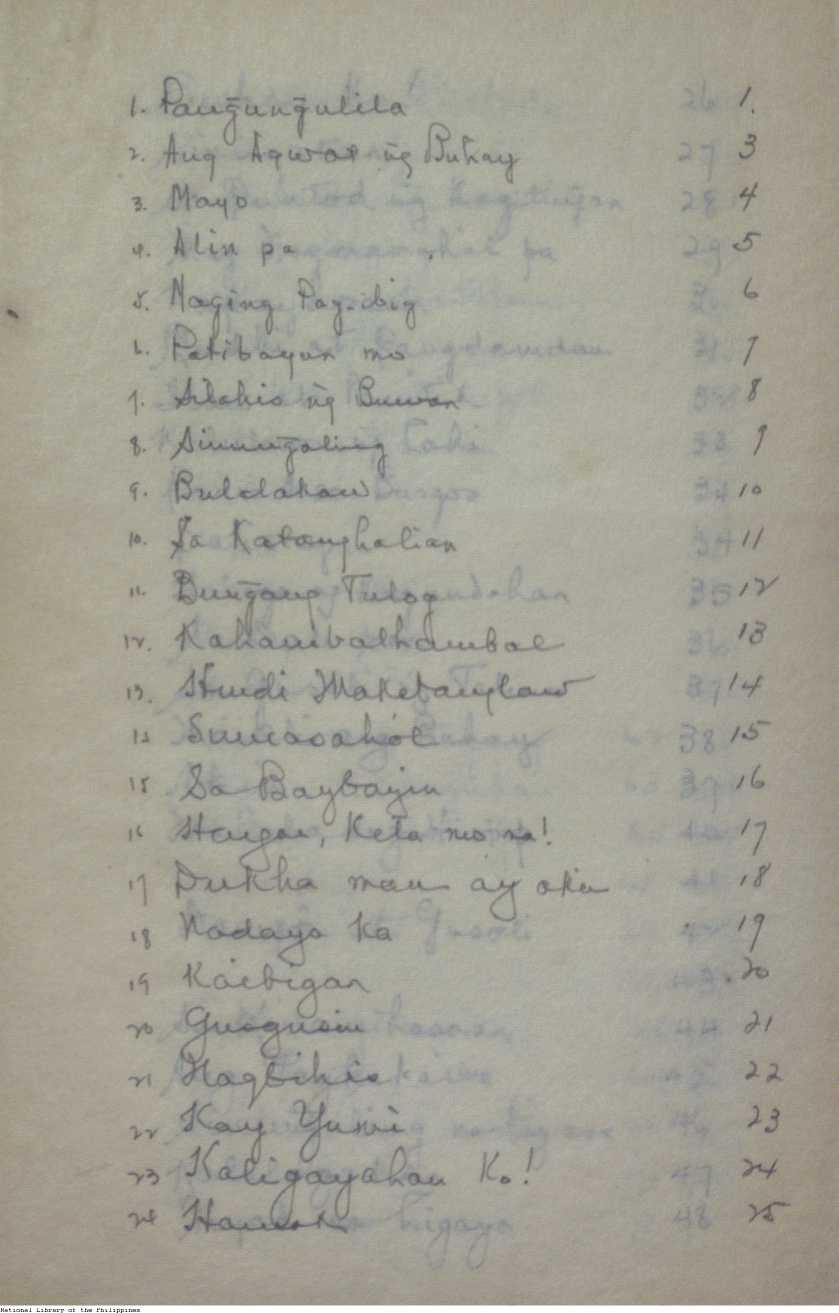 1. Pang̃ung̃ulila 1.
2. Ang Agwat ng̃ Buhay 3
3. Mayo 4
4. Alin pa 5
5. Naging Pag-ibig 6
6. Patibayan mo 7
7. Silahis ng̃ Buwan 8
8. Sinung̃aling 9
9. Bulalakaw 10
10. Sa Katanghalian 11
11. Bung̃ang Tulog 12
12. Kahambalhambal 13
13. Hindi Maketanglaw 14
14 Sumasahól 15
15 Sa Baybayin 16
16 Haigan, Keta mo na! 17
17 Dukha man ay akin 18
18 Nadaya ka 19
19 Kaibigan 20
20 Gusgusin 21
21 Nagbihis 22
22 Kay Yumi 23
23 Kaligayahan Ko! 24
24 Hamak 25
National Library of the Philippines